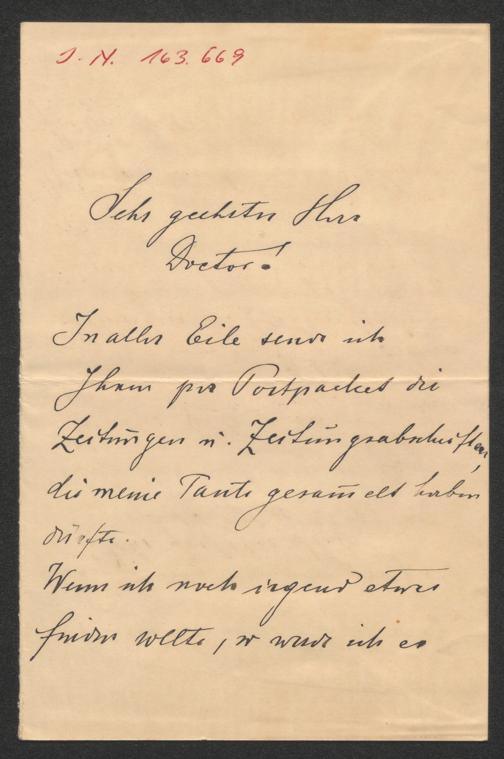 J. N. 163.669
Sehr geehrter Herr
Doctor!
In aller Eile sende ich
Ihnen per Postpacket die
Zeitungen u. Zeitungsabschriften,
die meine Tante gesam̅elt haben
dürfte.
Wenn ich noch irgend etwas
finden sollte, so werde ich es